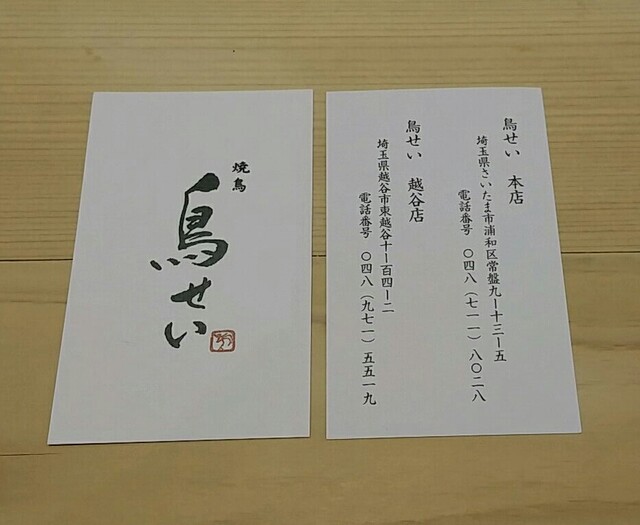 焼鳥
鳥せい
鳥せい　本店
埼玉県さいたま市浦和区常盤九ー十三ー五
電話番号　〇四八（七一一）八〇二八
鳥せい　越谷店
埼玉県越谷市東越谷十ー百四ー二
電話番号　〇四八（九七一）五五一九